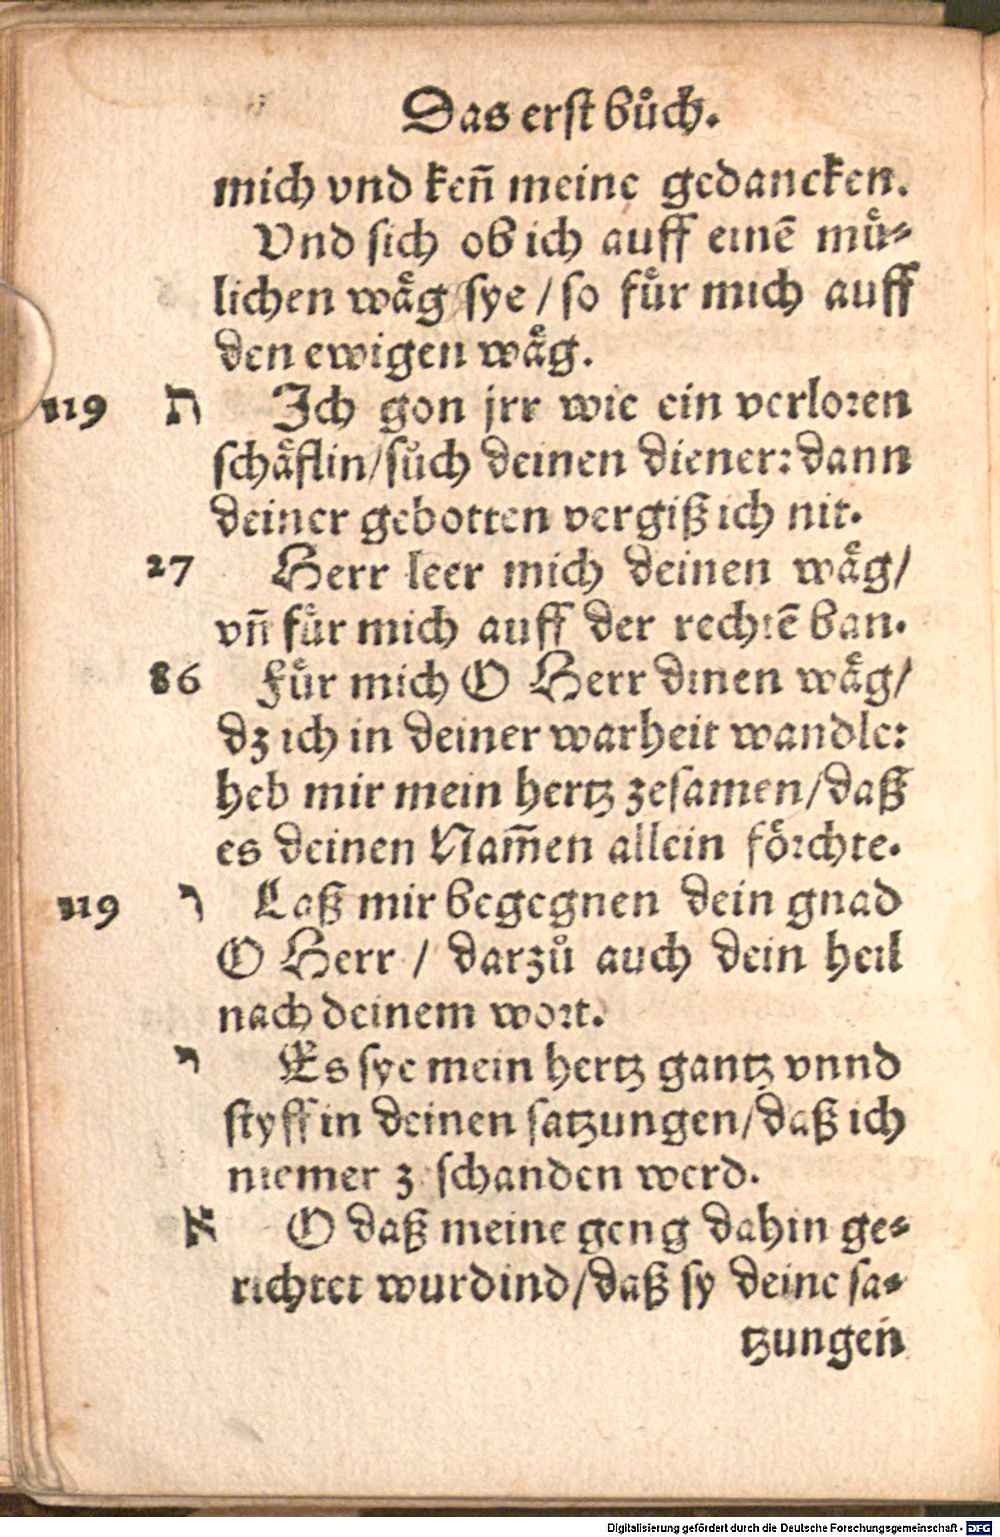 Das erst bůch.
mich vnd keñ meine gedancken.
Vnd sich ob ich auff einē muͤ⸗
lichen waͤg sye / so fuͤr mich auff
den ewigen waͤg.
119 ת Ich gon jrr wie ein verloren
schaͤflin/sůch deinen diener: dann
deiner gebotten vergiß ich nit.
27 Herr leer mich deinen waͤg/
vñ fuͤr mich auff der rechtē ban.
86 Fuͤr mich O Herr dinen waͤg/
dz ich in deiner warheit wandle:
heb mir mein hertz zesamen/daß
es deinen Nam̃en allein foͤrchte.
119 ו Laß mir begegnen dein gnad
O Herr / darzů auch dein heil
nach deinem wort.
י Es sye mein hertz gantz vnnd
styff in deinen satzungen/daß ich
niemer z schanden werd.
א O daß meine geng dahin ge⸗
richtet wurdind/daß sy deine sa⸗
tzungen
Digitalisierung gefördert durch die Deutsche Forschungsgemeinschaft - DFG